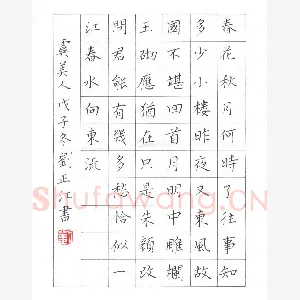 春花秋月何時了往事知
多少小樓昨夜又東風故
國不堪回首月明中雕欄
玉砌應猶在只是朱顏改
問君能有幾多愁恰似一
江春水向東流
虞美人戊子冬劉正書
Shufawang.CN